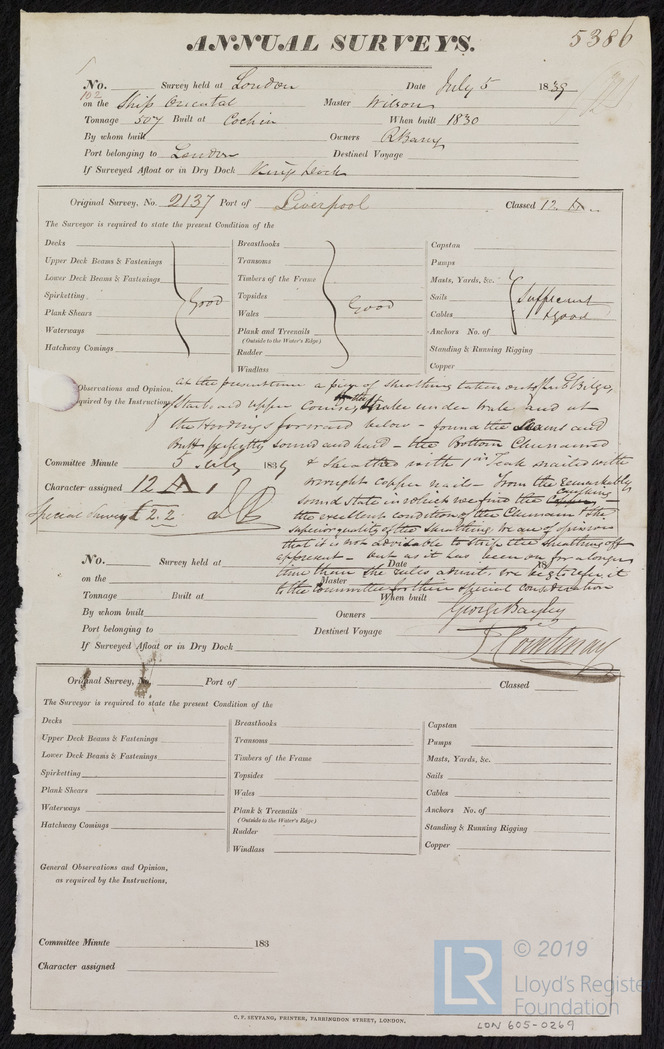 ANNUAL SURVEYS. 5386
No. 102 Survey held at London Date July 5 1839
on the Ship Oriental Master Wilson
Tonnage 507 Built at Cochin When built 1830
By whom built Owners
Port belonging to London Destined Voyage
If Surveyed Afloat or in Dry Dock Dock
Original Survey, No. 2137 Port of Liverpool Classed 12 A
The Surveyor is required to state the present Condition of the
Decks Breasthooks Capstan
Upper Deck Beams & Fastenings Transoms Pumps
Lower Deck Beams & Fastenings Timbers of the Frame Masts, Yards, &c.
Spirketting Good Topsides Good Sails Sufficient
Plank Shears Wales Cables & good
Waterways Plank and Treenails Anchors No. of
(Outside to the Water's Edge)
Hatchway Comings Rudder Standing & Running Rigging
Windlass Copper
Observations and Opinion, at the present time a piece of sheathing taken out of the Bilge,
required by the Instructions Starboard upper Course, under wale and at
the Hoodings forward below - found the Seams and
Butts perfectly sound and hard - the Bottom Chunamed
Committee Minute 5 July 1839 & Sheathed with 1 in Teak nailed with
Character assigned 12 A 1 wrought copper nails - From the remarkably
sound state in which we find the Caulking
Special Survey
the excellent condition of the Chunam & the
superior quality of the Sheathing, we are of opinion
that it is not advisable to strip the Sheathing off
at present - but as it has been on for a longer
time than the rules admit, we beg to refer it
to the Committee for their special consideration
George Bayley
J Courtenay
No. Survey held at Date 183
on the Master
Tonnage Built at When built
By whom built Owners
Port belonging to Destined Voyage
If Surveyed Afloat or in Dry Dock
Original Survey, No. Port of Classed
The Surveyor is required to state the present Condition of the
Decks Breasthooks Capstan
Upper Deck Beams & Fastenings Transoms Pumps
Lower Deck Beams & Fastenings Timbers of the Frame Masts, Yards, &c.
Spirketting Topsides Sails
Plank Shears Wales Cables
Waterways Plank & Treenails Anchors No. of
(Outside to the Water's Edge)
Hatchway Comings Rudder Standing & Running Rigging
Windlass Copper
General Observations and Opinion,
as required by the Instructions.
Committee Minute 183
Character assigned
C. F. SEYFANG, PRINTER, FARRINGDON STREET, LONDON.
LR © 2019
Lloyd's Register
Foundation
LON 605-0269